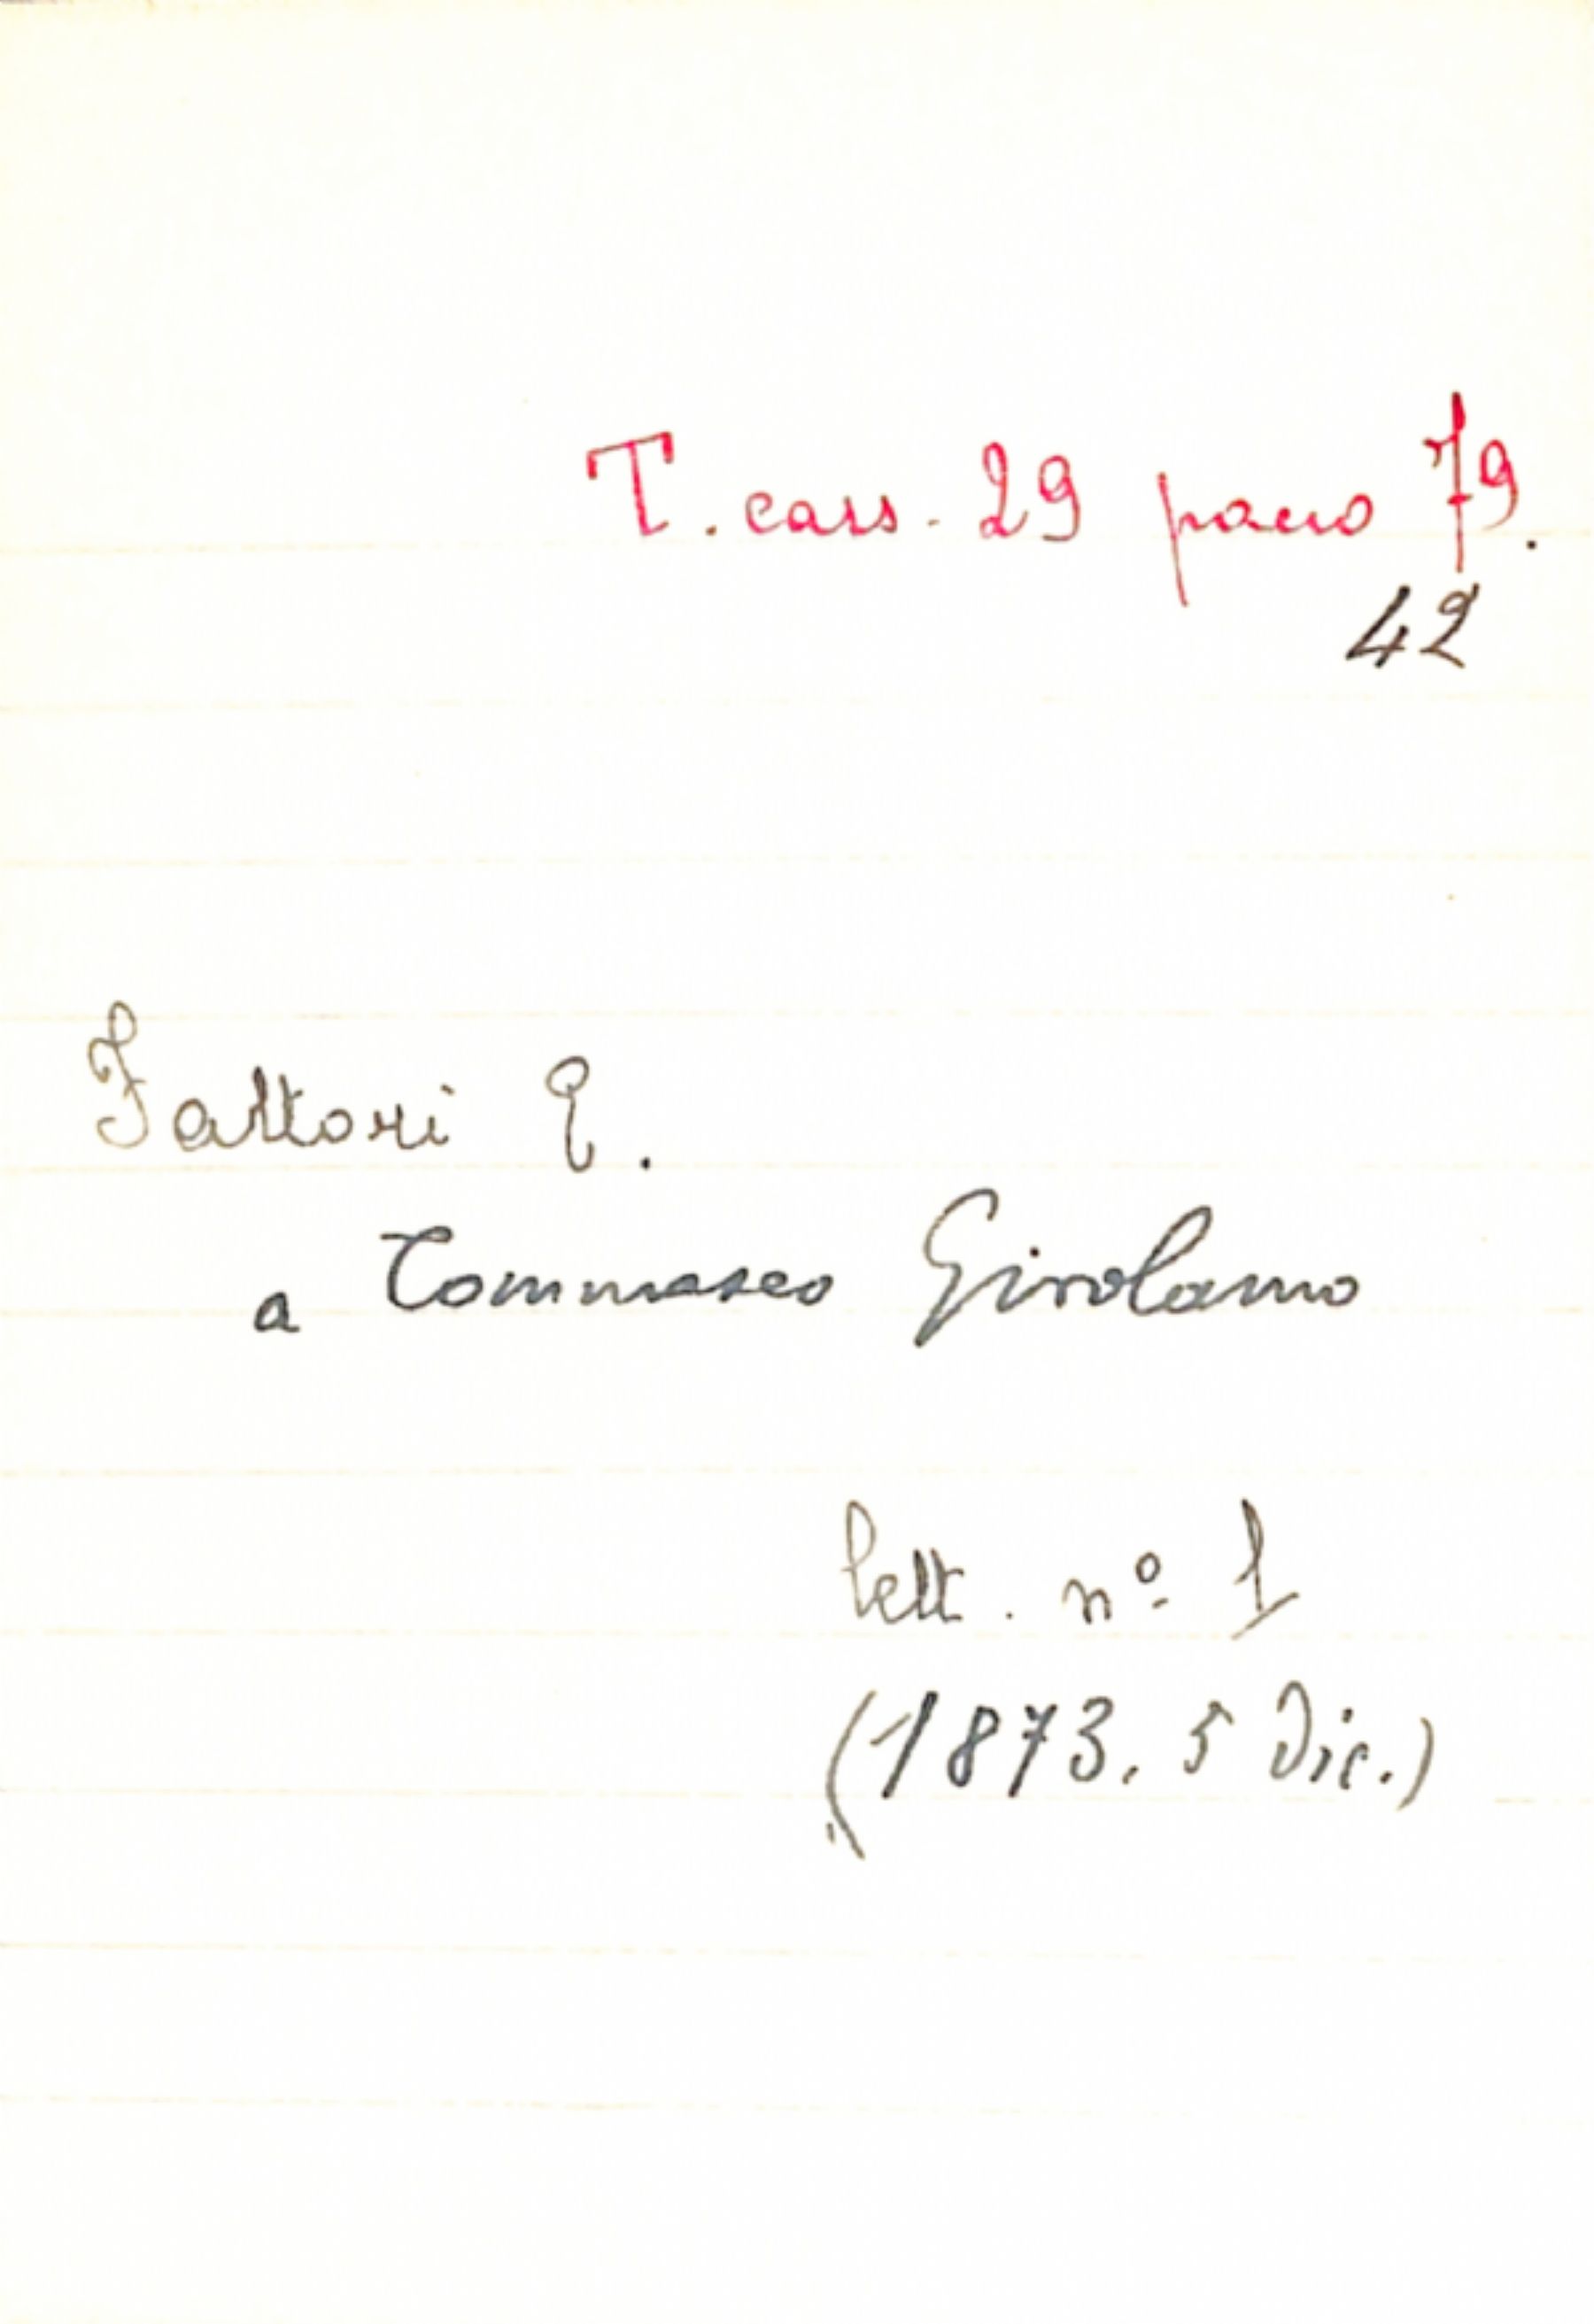 T. cass. 29 pacco 79.
42
Fattori E.
a Tommaseo Girolamo
lett. nº 1
(1873. 5 Dic.)